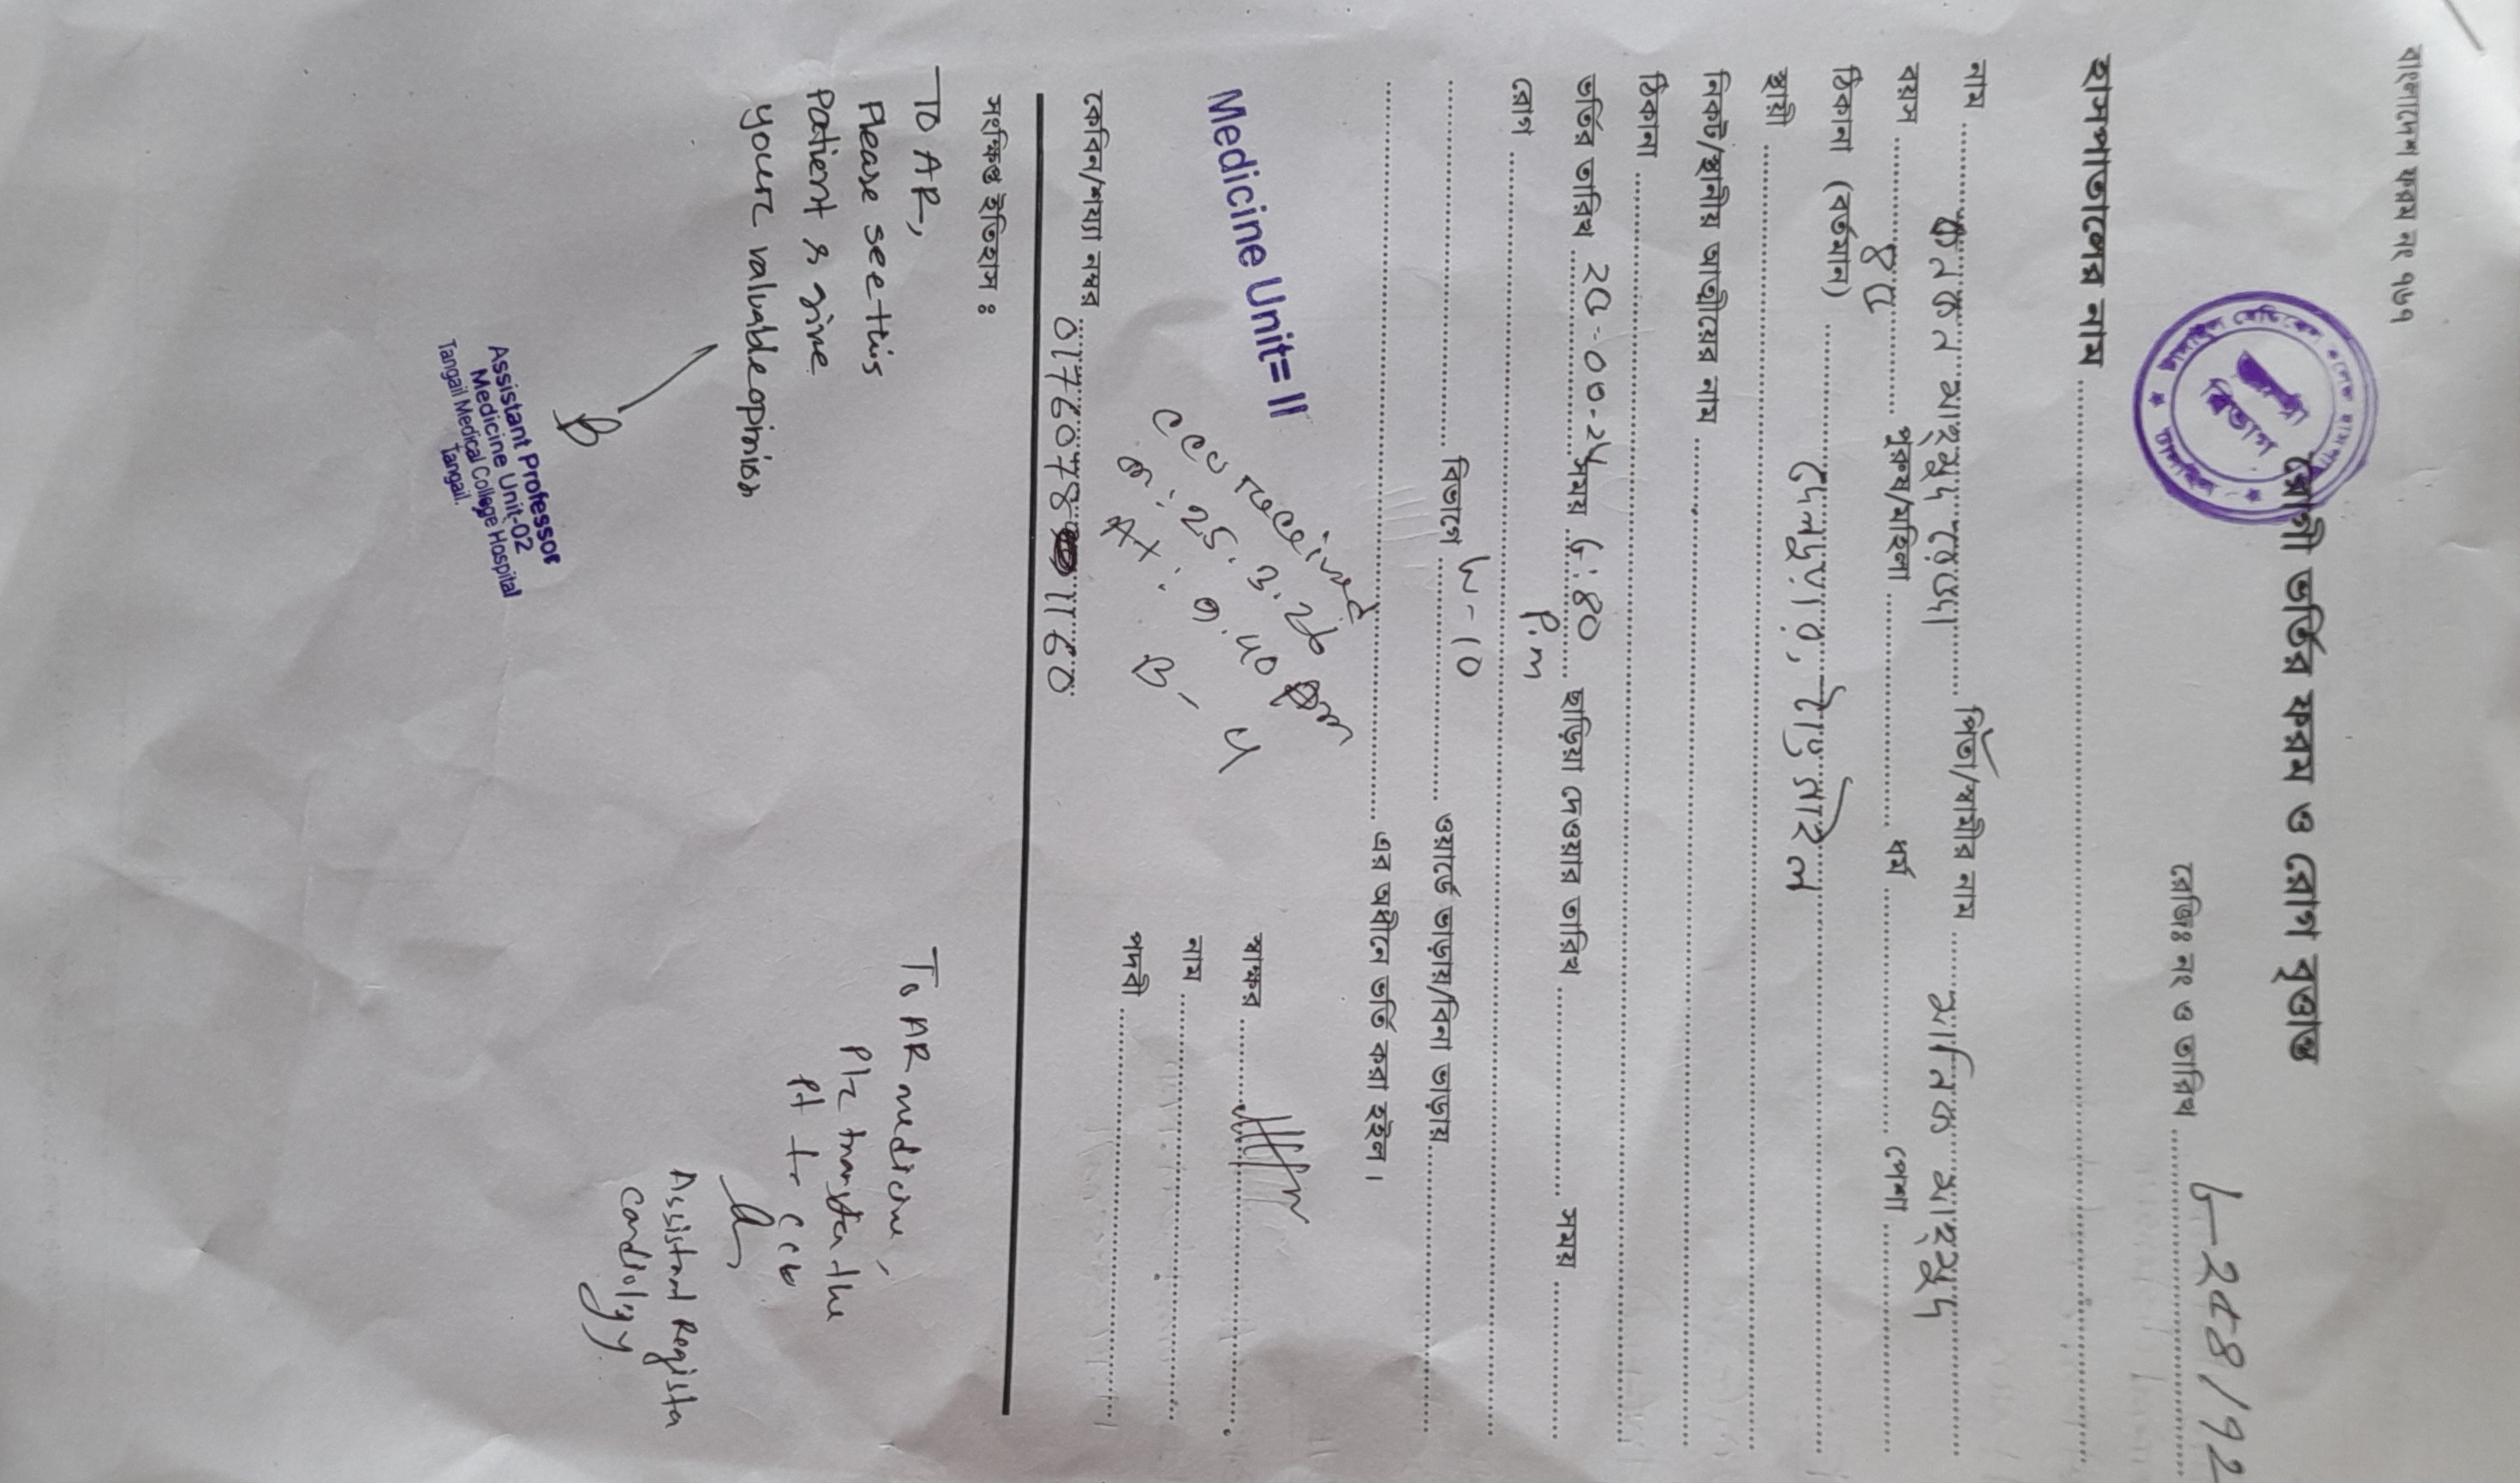 বাংলাদেশ ফরম নং ৭৬৭
রোগী ভর্তির ফরম ও রোগ বৃত্তান্ত
রেজিঃ নং ও তারিখ
হাসপাতালের নাম
নাম কনক মাহমুদ পিতা/স্বামীর নাম মানিক মাহমুদ
বয়স ৪৫ পুরুষ/মহিলা ধর্ম পেশা
ঠিকানা (বর্তমান) দেলদুয়ার, টাঙ্গাইল
স্থায়ী
নিকট/স্থানীয় আত্মীয়ের নাম
ঠিকানা
ভর্তির তারিখ সময় ৫:৪০ P.m ছাড়িয়া দেওয়ার তারিখ সময়
রোগ
বিভাগে W-10 ওয়ার্ডে ভাড়ায়/বিনা ভাড়ায়
এর অধীনে ভর্তি করা হইল।
Medicine Unit= II
CCU received
25.3.26
6.40
স্বাক্ষর
নাম
পদবী
কেবিন/শয্যা নম্বর
সংক্ষিপ্ত ইতিহাস ঃ
TO AR,
Please see this
patient & give
your valuable opinion
Assistant Professor
Medicine Unit-02
Tangail Medical College Hospital
Tangail.
To AR medicine,
Plz transfer the
pt to CCU
Assistant Register
Cardiology